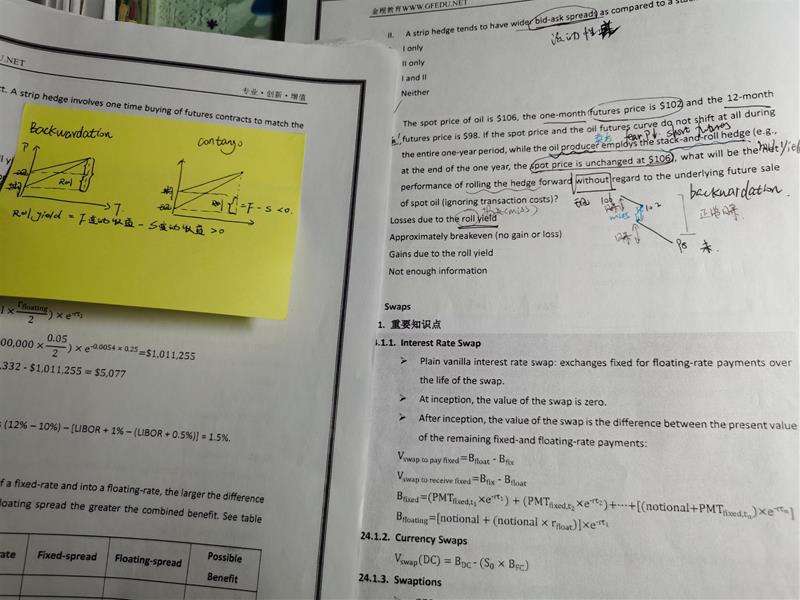 U.NET
专业·创新·增值
ct. A strip hedge involves one time buying of futures contracts to match the
Backwardation
P
Roll
T
Roll yield = F变动收益 - S变动收益 >0
Contango
Roll
= F - S <0.
r_floating
2
) × e^-rt₁
00,000 × 0.05/2) × e^-0.0054 × 0.25=$1,011,255
.332 - $1,011,255 = $5,077
s (12% – 10%) – [LIBOR + 1% – (LIBOR + 0.5%)] = 1.5%.
f a fixed-rate and into a floating-rate, the larger the difference
loating spread the greater the combined benefit. See table
rate Fixed-spread Floating-spread Possible
Benefit
金程教育WWW.GFEDU.NET
II. A strip hedge tends to have wider bid-ask spreads as compared to a
流动性差
I only
II only
I and II
Neither
The spot price of oil is $106, the one-month futures price is $102 and the 12-month
futures price is $98. If the spot price and the oil futures curve do not shift at all during
fear P↓ short futures
the entire one-year period, while the oil producer employs the stack-and-roll hedge (e.g.,
at the end of the one year, the spot price is unchanged at $106), what will be the
performance of rolling the hedge forward without regard to the underlying future sale
of spot oil (ignoring transaction costs)?
106
102
98
backwardation
Losses due to the roll yield
Approximately breakeven (no gain or loss)
Gains due to the roll yield
Not enough information
Swaps
1. 重要知识点
4.1.1. Interest Rate Swap
➢ Plain vanilla interest rate swap: exchanges fixed for floating-rate payments over
the life of the swap.
➢ At inception, the value of the swap is zero.
➢ After inception, the value of the swap is the difference between the present value
of the remaining fixed-and floating-rate payments:
V_swap to pay fixed=B_float - B_fix
V_swap to receive fixed=B_fix - B_float
B_fixed=(PMT_fixed,t₁×e^-rt₁) + (PMT_fixed,t₂×e^-rt₂)+⋯+[(notional+PMT_fixed,tₙ)×e^-rtₙ]
B_floating=[notional + (notional × r_float)]×e^-rt₁
24.1.2. Currency Swaps
V_swap(DC) = B_DC - (S₀ × B_FC)
24.1.3. Swaptions